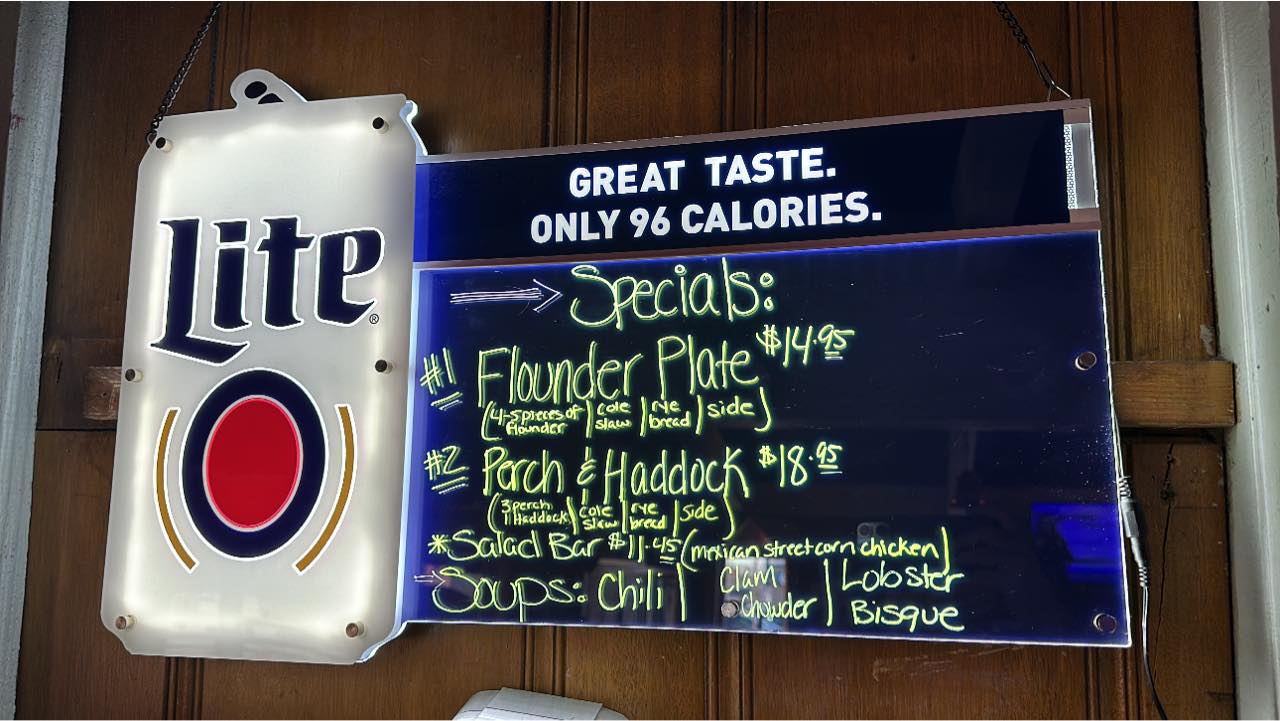 Lite®
GREAT TASTE.
ONLY 96 CALORIES.
Specials:
#1 Flounder Plate $14.95
(4-5 pieces of Flounder | cole slaw | rye bread | side)
#2 Perch & Haddock $18.95
(3 perch 1 Haddock | cole slaw | rye bread | side)
*Salad Bar $11.45 (mexican street corn chicken)
Soups: Chili | Clam Chowder | Lobster Bisque